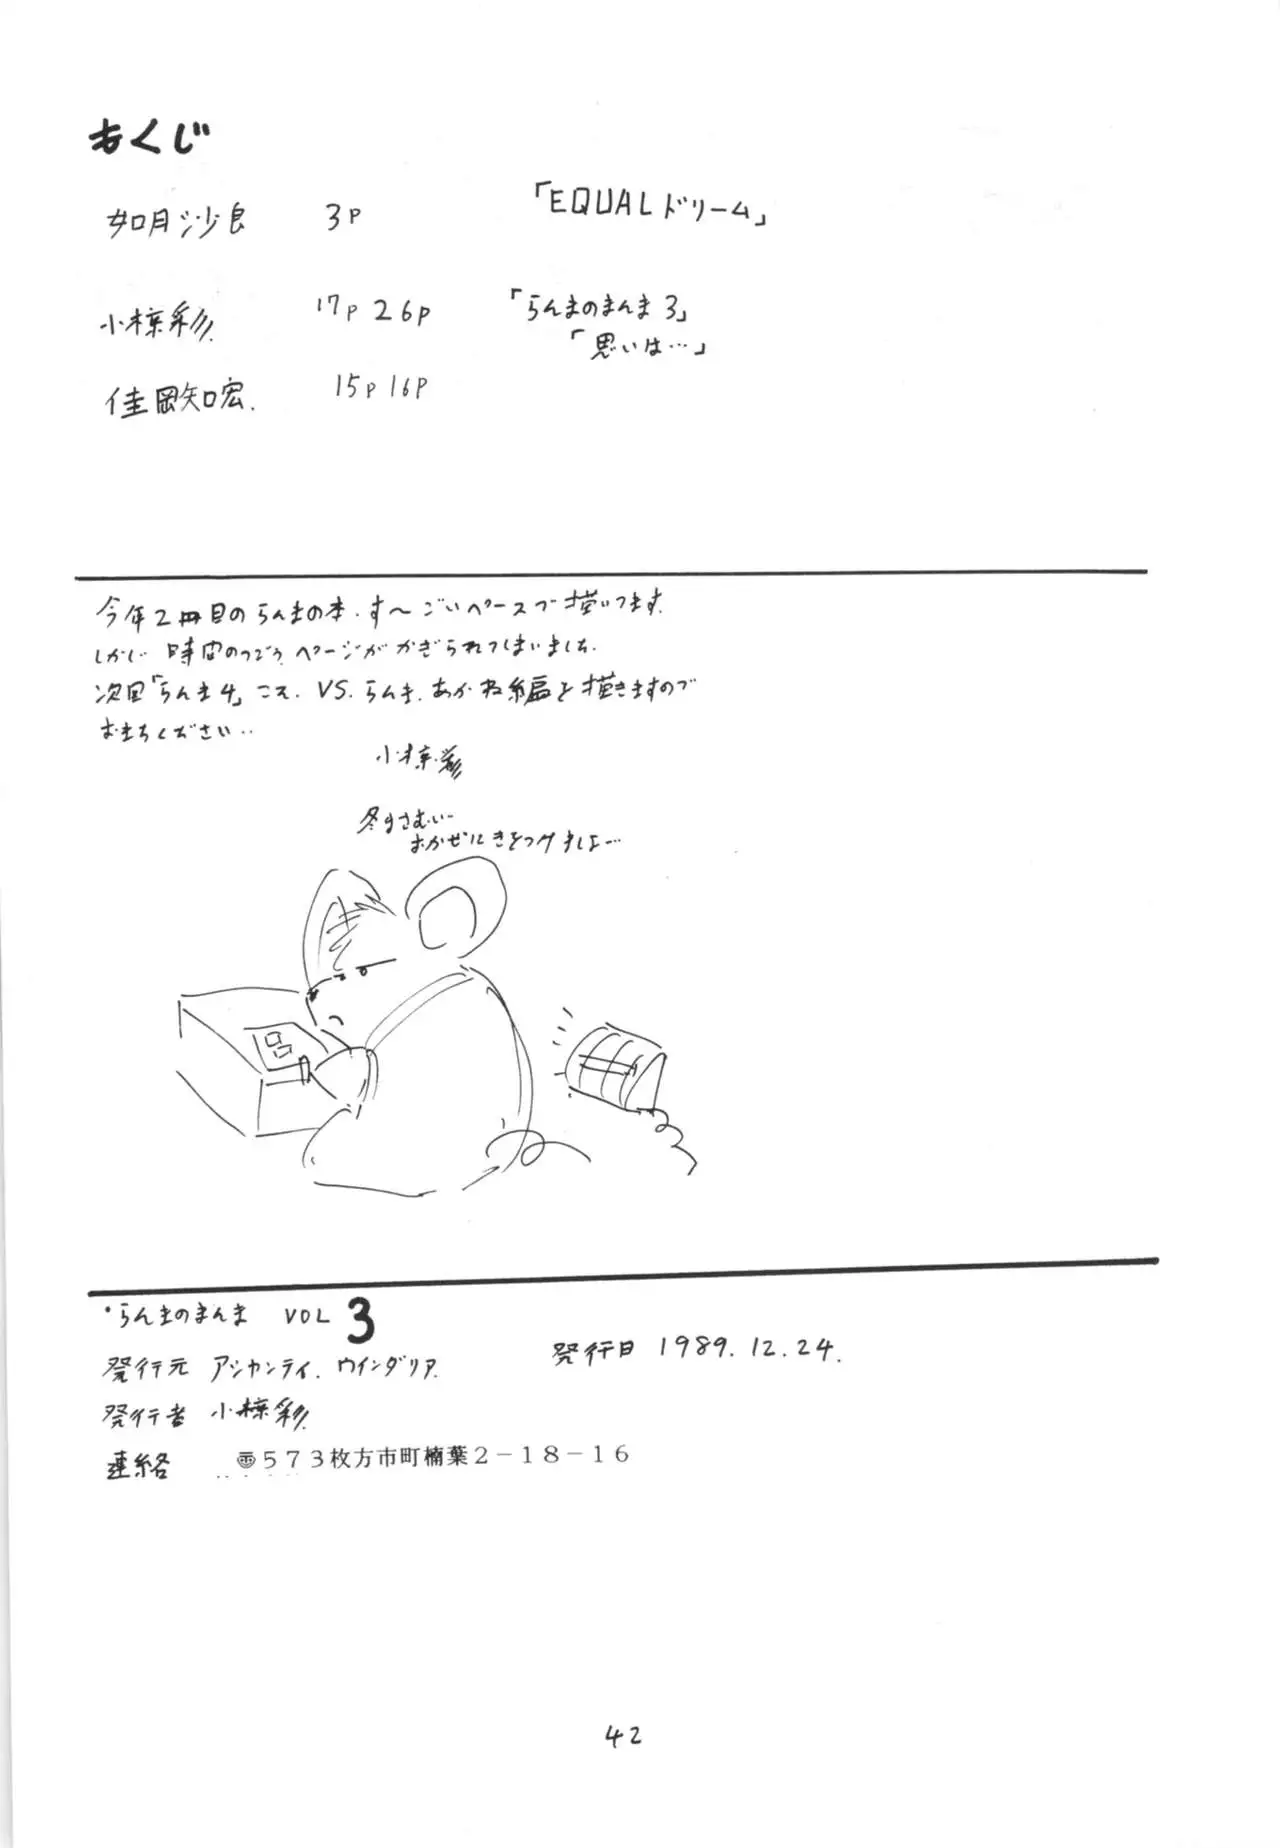 もくじ
如月沙良 3P 「EQUALドリーム」
小椋彩. 17P 26P 「らんまのまんま3」
「思いは…」
佳岡知宏. 15P 16P
今年2冊目のらんまの本.す〜ごいペースで描いてます.
しかし 時間のつごう、ページがかぎられてしまいました.
次回「らんま4」こそ. VS.らんま.あかね編を描きますので
おまちください..
小椋彩
冬はさむい…
おかぜにきをつけましょ…
・らんまのまんま VOL 3
発行元 アシカンティ.ウインダリア. 発行日 1989.12.24.
発行者 小椋彩.
連絡 〠573枚方市町楠葉2−18−16
42